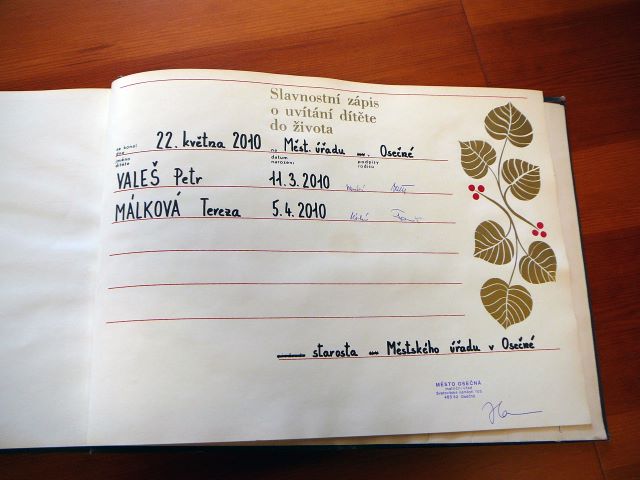 Slavnostní zápis
o uvítání dítěte
do života
se konal dne 22. května 2010 na Měst. úřadu v Osečné
jméno dítěte datum narození podpisy rodičů
VALEŠ Petr 11.3.2010
MÁLKOVÁ Tereza 5.4.2010
starosta Městského úřadu v Osečné
MĚSTO OSEČNÁ
Svatovítské náměstí 105
463 52 Osečná